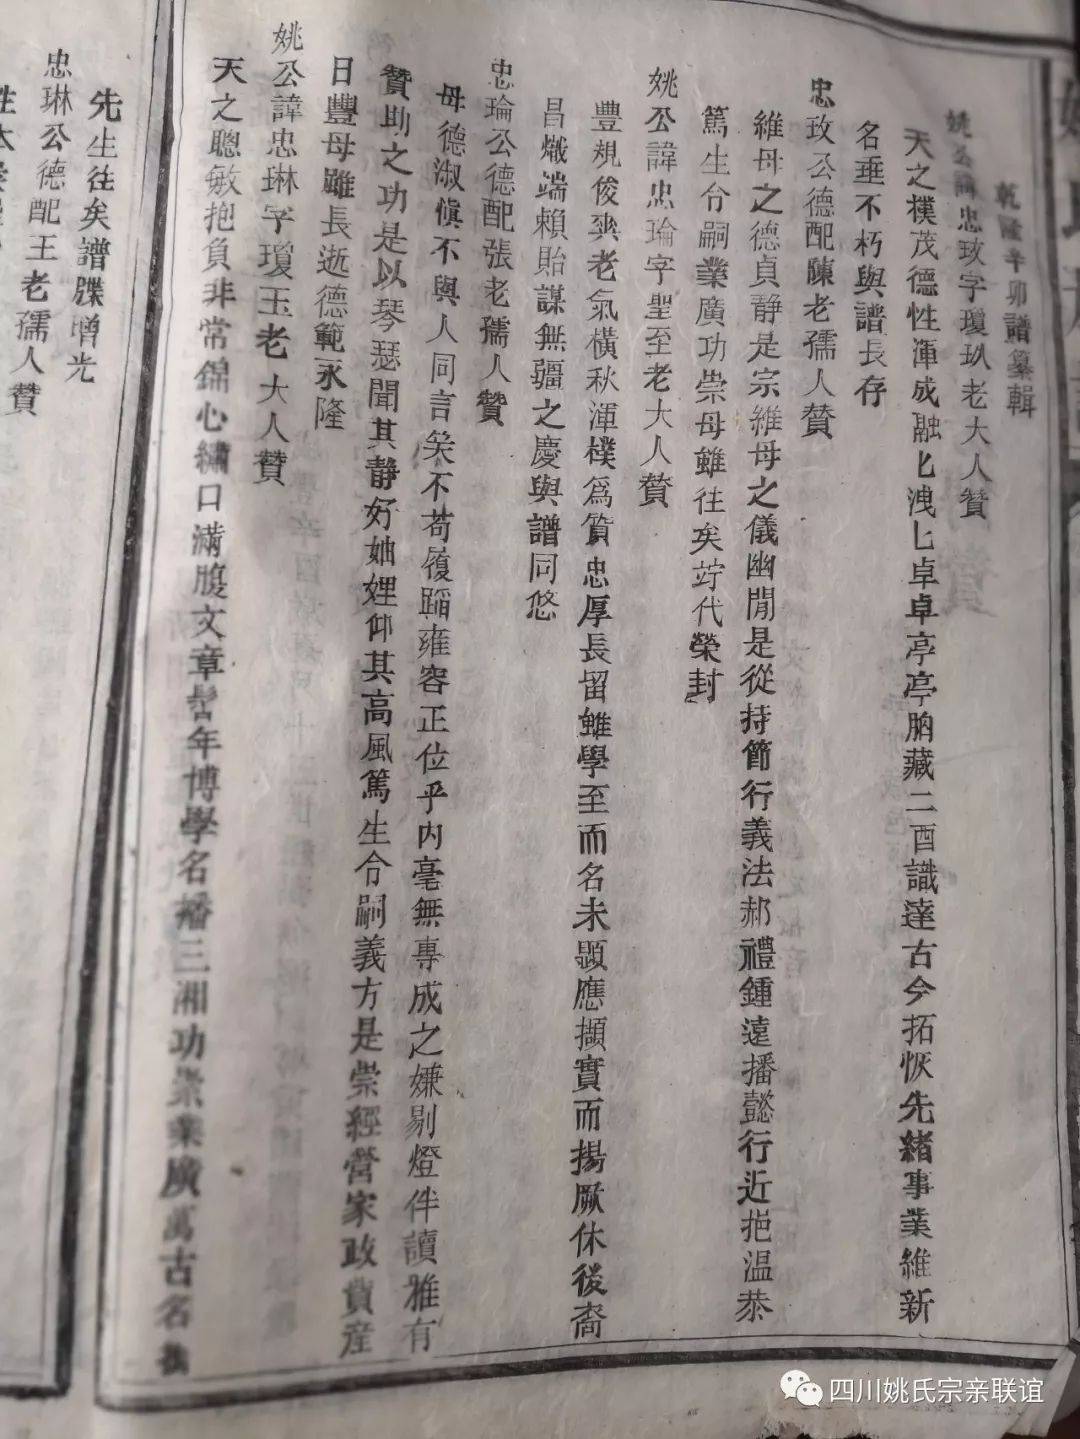 乾隆辛卯譜纂輯
姚公諱忠玫字瓊玖老大人贊
天之樸茂德性渾成融匕洩匕卓卓亭亭胸藏二酉識達古今拓恢先緒事業維新
名垂不朽與譜長存
忠玫公德配陳老孺人贊
維母之德貞静是宗維母之儀幽閒是從持節行義法郝禮鍾遠播懿行近挹温恭
篤生令嗣業廣功崇母雖往矣竚代榮封
姚公諱忠瑜字聖至老大人贊
豐規俊爽老氣橫秋渾樸爲質忠厚長留雖學至而名未顯應擷實而揚厥休後裔
昌熾端賴貽謀無疆之慶與譜同悠
忠瑜公德配張老孺人贊
母德淑慎不與人同言笑不苟履蹈雍容正位乎内毫無專成之嫌剔燈伴讀雅有
贊助之功是以琴瑟聞其静好妯娌仰其高風篤生令嗣義方是崇經營家政貲産
日豐母雖長逝德範永隆
姚公諱忠琳字瓊玉老大人贊
天之聰敏抱負非常錦心繡口滿腹文章髫年博學名播三湘功崇業廣萬古名
先生往矣譜牒增光
忠琳公德配王老孺人贊
性本
姚氏族譜
四川姚氏宗亲联谊